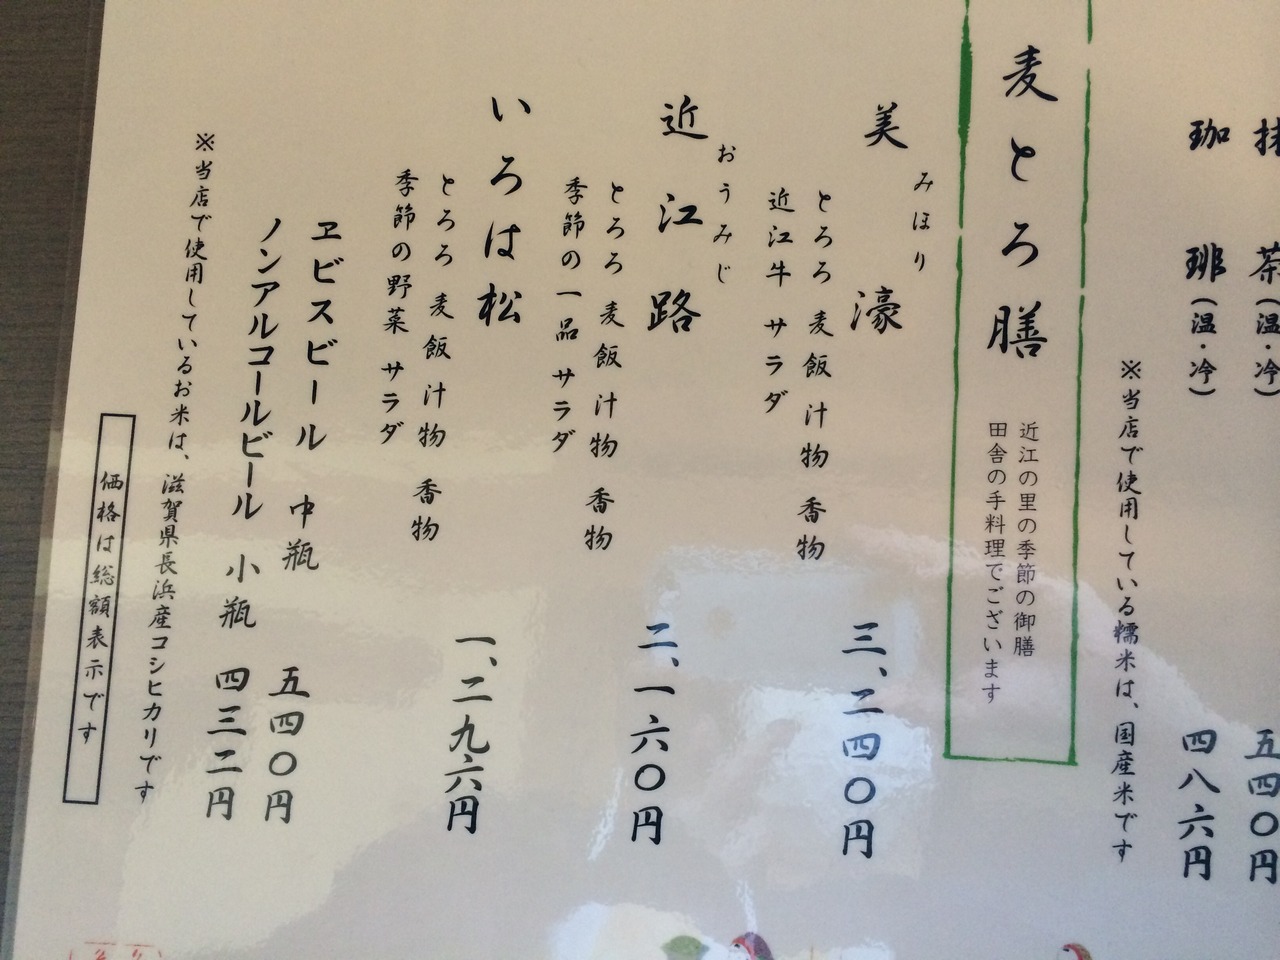 抹茶(温・冷) 五四〇円
珈琲(温・冷) 四八六円
※当店で使用している糯米は、国産米です
麦とろ膳
近江の里の季節の御膳
田舎の手料理でございます
みほり
美濠 三、二四〇円
とろろ 麦飯 汁物 香物
近江牛 サラダ
おうみじ
近江路 二、一六〇円
とろろ 麦飯 汁物 香物
季節の一品 サラダ
いろは松 一、二九六円
とろろ 麦飯 汁物 香物
季節の野菜 サラダ
ヱビスビール 中瓶 五四〇円
ノンアルコールビール 小瓶 四三二円
※当店で使用しているお米は、滋賀県長浜産コシヒカリです
価格は総額表示です